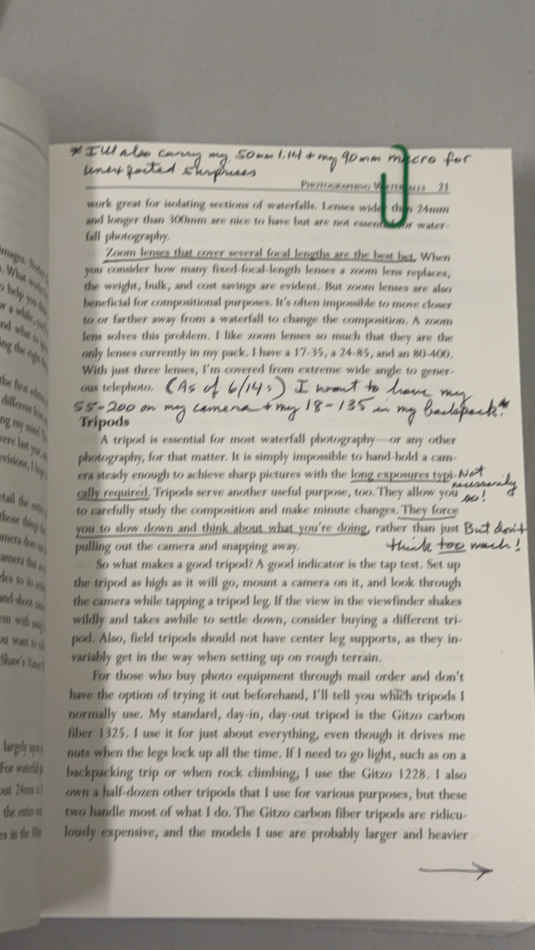 * I'll also carry my 50mm 1.4 + my 90mm macro for
unexpected surprises
PHOTOGRAPHING WATERFALLS 21
work great for isolating sections of waterfalls. Lenses wider than 24mm
and longer than 300mm are nice to have but are not essential for water-
fall photography.
Zoom lenses that cover several focal lengths are the best bet. When
you consider how many fixed-focal-length lenses a zoom lens replaces,
the weight, bulk, and cost savings are evident. But zoom lenses are also
beneficial for compositional purposes. It's often impossible to move closer
to or farther away from a waterfall to change the composition. A zoom
lens solves this problem. I like zoom lenses so much that they are the
only lenses currently in my pack. I have a 17-35, a 24-85, and an 80-400.
With just three lenses, I'm covered from extreme wide angle to gener-
ous telephoto. (As of 6/14:) I want to have my
55-200 on my camera + my 18-135 in my backpack.*
Tripods
A tripod is essential for most waterfall photography—or any other
photography, for that matter. It is simply impossible to hand-hold a cam-
era steady enough to achieve sharp pictures with the long exposures typi- Not
cally required. Tripods serve another useful purpose, too. They allow you necessarily so!
to carefully study the composition and make minute changes. They force
you to slow down and think about what you're doing, rather than just But don't
pulling out the camera and snapping away. think too much!
So what makes a good tripod? A good indicator is the tap test. Set up
the tripod as high as it will go, mount a camera on it, and look through
the camera while tapping a tripod leg. If the view in the viewfinder shakes
wildly and takes awhile to settle down, consider buying a different tri-
pod. Also, field tripods should not have center leg supports, as they in-
variably get in the way when setting up on rough terrain.
For those who buy photo equipment through mail order and don't
have the option of trying it out beforehand, I'll tell you which tripods I
normally use. My standard, day-in, day-out tripod is the Gitzo carbon
fiber 1325. I use it for just about everything, even though it drives me
nuts when the legs lock up all the time. If I need to go light, such as on a
backpacking trip or when rock climbing, I use the Gitzo 1228. I also
own a half-dozen other tripods that I use for various purposes, but these
two handle most of what I do. The Gitzo carbon fiber tripods are ridicu-
lously expensive, and the models I use are probably larger and heavier